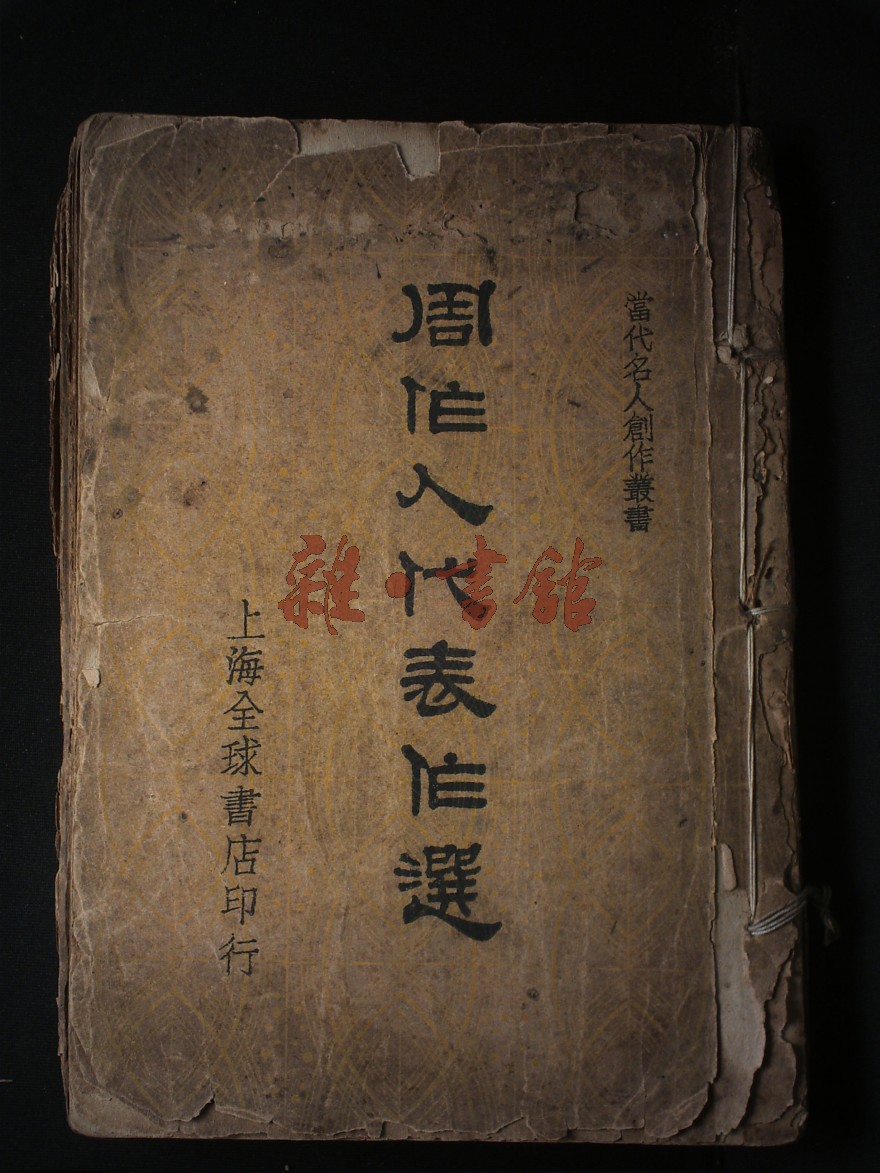 當代名人創作叢書
周作人代表作選
上海全球書店印行
雜·書館